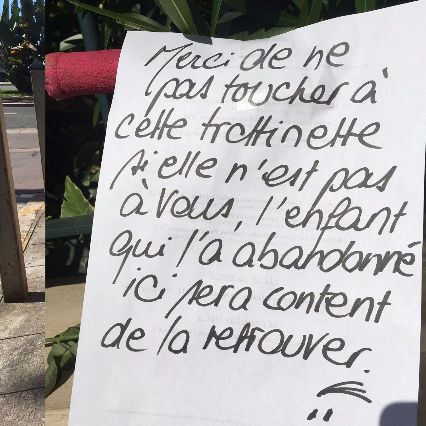 Merci de ne
pas toucher à
cette trottinette
si elle n'est pas
à vous, l'enfant
qui l'a abandonné
ici sera content
de la retrouver.